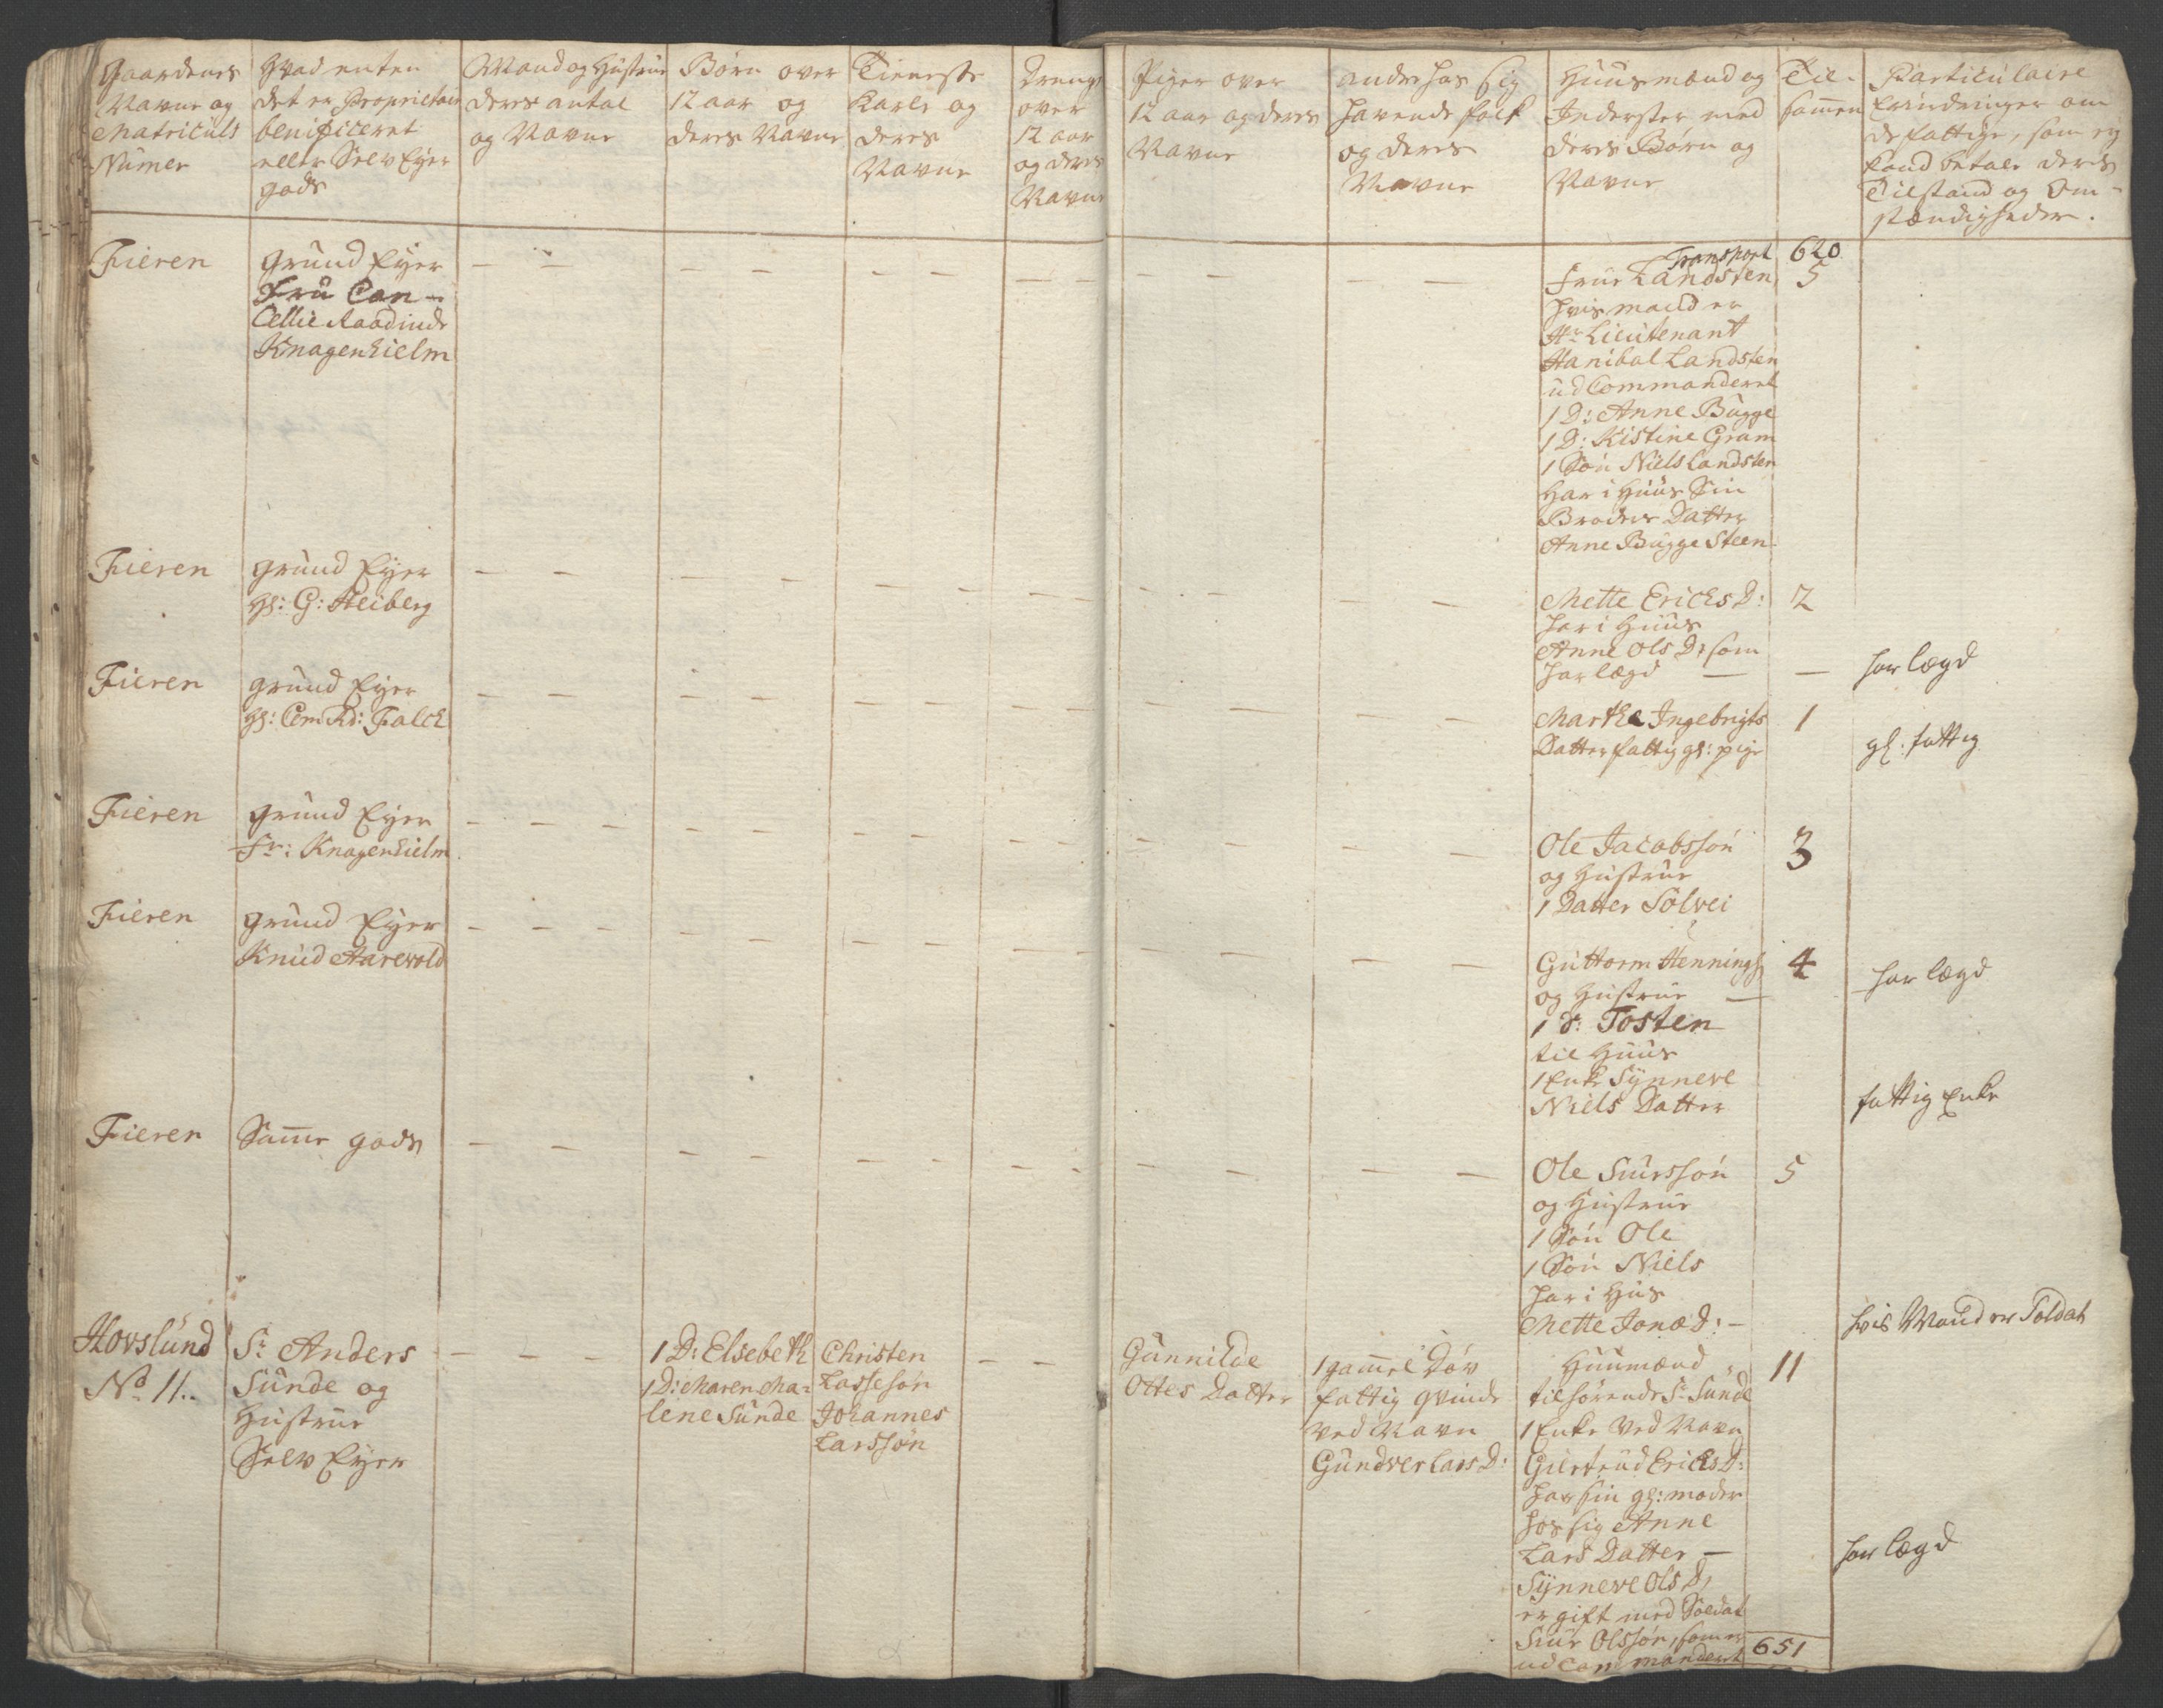 Gaardenes
Navne og
Matriculs
Numer
Hvad enten
det er Proprietair
benificeret
eller Selv Eyer
gods
Mand og Hustrue
deres antal
og Navne
Børn over
12 aar og
deres Navne
Tieneste
Karle og
deres
Navne
Drenge
over
12 aar
og deres
Navne
Piger over
12 aar og deres
Navne
andre hos sig
havende folk
og deres
Navne
Huusmænd og
Inderster med
deres Børn og
Navne
Til-
sam̄en
Particulaire
Erindringer om
de fattige, som ey
kand betale deres
Tilstand og Om-
stændigheder.
Transport 620
Fieren
grund Eyer
Fru Can-
Cellie Raadinde
Knagenhielm
Frue Landsten 5
hvis mand er
Hr Lieutenant
Hanibal Landsten
ud Commanderet
1 D: Anne Bugge
1 D: Kistine Gram
1 Søn Niels Landsten
har i Huus Sin
Broders Datter
Anne Bugge Steen
Fieren
grund Eyer
Hr: G: Heiberg
Mette Ericks D: 2
har i Huus
Anne Ols D: som
har lægd — — har lægd
Fieren
grund Eyer
Hr: Cem Rd: Falck
Marthe Ingebrigts 1
Datter fattig gl: pige
gl. fattig
Fieren
grund Eyer
Fr: Knagenhielm
Ole Jacobssøn 3
og Hustrue
1 Datter Sølvei
Fieren
grund Eyer
Knud Aarevold
Guttorm Hennings 4
og Hustrue — har lægd
1 d: Tosten
til Huus
1 Enke Synneve
Niels Datter
fattig Enke
Fieren
Sam̄e gods
Ole Siurssøn 5
og Hustrue
1 Søn Ole
1 Søn Niels
har i Hus
Mette Jonæ D: —
hvis Mand er Soldat
Hovslund
No 11..
Sr Anders
Sunde og
Hustrue
Selv Eyer
1 D: Elsebeth
1 D: Maren Ma-
lene Sunde
Christen
Lassesøn
Johannes
Larssøn
Gunnilde
Ottes Datter
1 gam̄el Døv
fattig qvinde
ved Navn
Gundver Lars D:
Huusmænd 11
tilhørende Sr Sunde
1 Enke ved Navn
Giertrud Ericks D:
har sin gl: moder
hos sig Anne
Lars Datter —
har lægd
Synneve Ols D,
er gift med Soldat
Siur Olssøn, som er
ud Commanderet
651